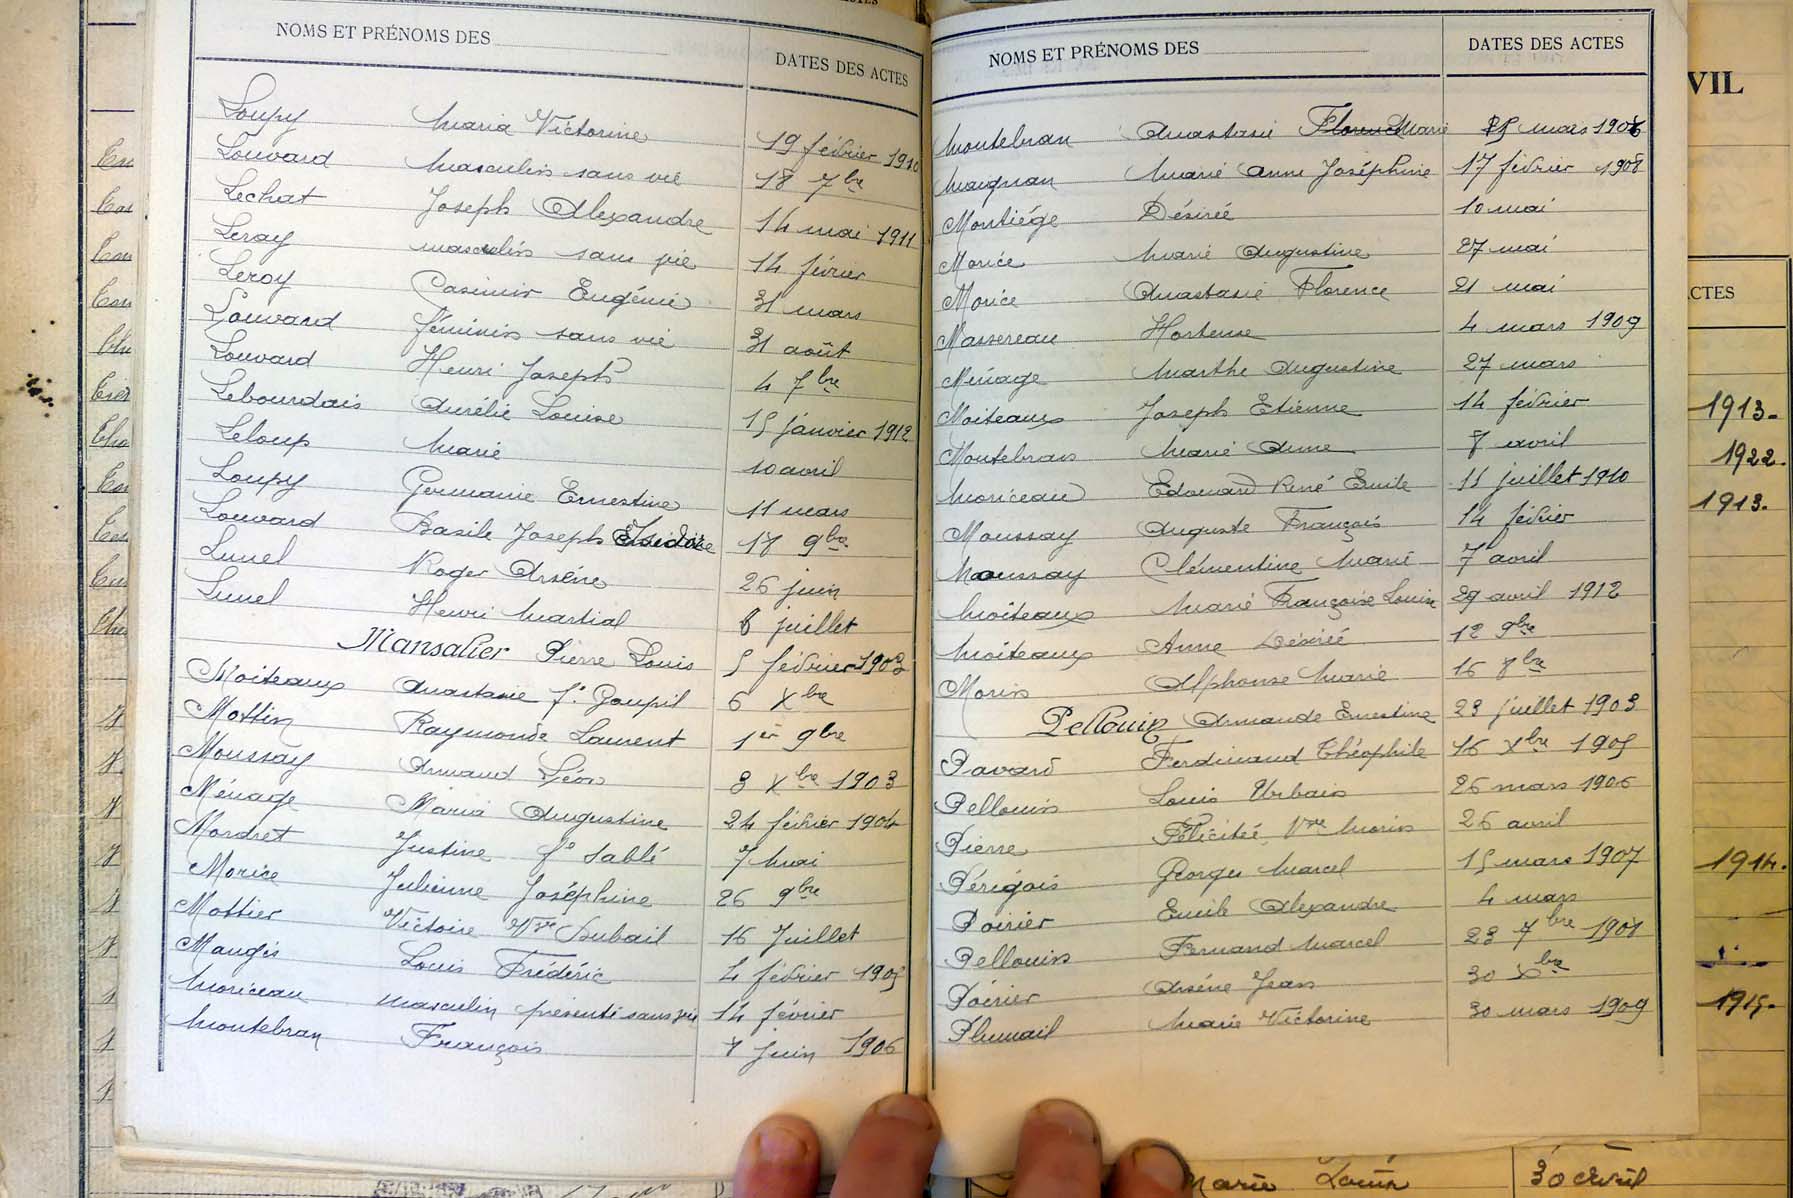 NOMS ET PRÉNOMS DES
DATES DES ACTES
Loupy Maria Victorine 19 février 1910
Louvard masculin sans vie 18 7bre
Lechat Joseph Alexandre 14 mai 1911
Leray masculin sans vie 14 février
Leroy Casimir Eugénie 31 mars
Louvard féminin sans vie 31 août
Louvard Henri Joseph 4 7bre
Lebourdais Aurélie Louise 15 janvier 1912
Leloup Marie 10 avril
Loupy Germanie Ernestine 11 mars
Louvard Basile Joseph Isidore 17 9bre
Lunel Roger Arsène 26 juin
Lunel Henri Martial 8 juillet
Mansalier Pierre Louis 5 février 1903
Moiteaux Anastasie fe Goupil 6 Xbre
Mottin Raymonde Laurent 1er 9bre
Moussay Armand Léon 3 Xbre 1903
Ménage Maria Augustine 24 février 1904
Mordret Justine fe Sablé 7 Mai
Morice Julienne Joséphine 26 9bre
Mottier Victoire Vve Dubail 16 Juillet
Maugis Louis Frédéric 4 février 1905
Moriceau masculin présenté sans vie 14 février
Montebran François 7 juin 1906
NOMS ET PRÉNOMS DES
DATES DES ACTES
Montebran Anastasie Florence Marie 25 mars 1906
Maignan Marie Anne Joséphine 17 février 1908
Montiége Désirée 10 mai
Morice Marie Augustine 27 mai
Morice Anastasie Florence 21 mai
Massereau Hortense 4 mars 1909
Ménage Marthe Augustine 27 mars
Moiteaux Joseph Etienne 14 février
Montebran Marie Anne 8 avril
Moriceau Edouard René Emile 11 juillet 1910
Moussay Auguste François 14 février
Moussay Clémentine Marie 7 avril
Moiteaux Marie Françoise Louise 29 avril 1912
Moiteaux Anne Désirée 12 9bre
Morin Alphonse Marie 16 8bre
Pellouin Armande Ernestine 23 juillet 1903
Pavard Ferdinand Théophile 16 Xbre 1905
Pellouin Louis Urbain 26 mars 1906
Pierre Félicitée Vve Morin 26 avril
Périgois Georges Marcel 15 mars 1907
Poirier Emile Alexandre 4 mars
Pellouin Fernand Marcel 23 7bre 1908
Poirier Arsène Jean 30 Xbre
Plumail Marie Victorine 30 mars 1909
VIL
CTES
1913.
1922.
1913.
1914.
1915.
Marie Louise 30 Avril